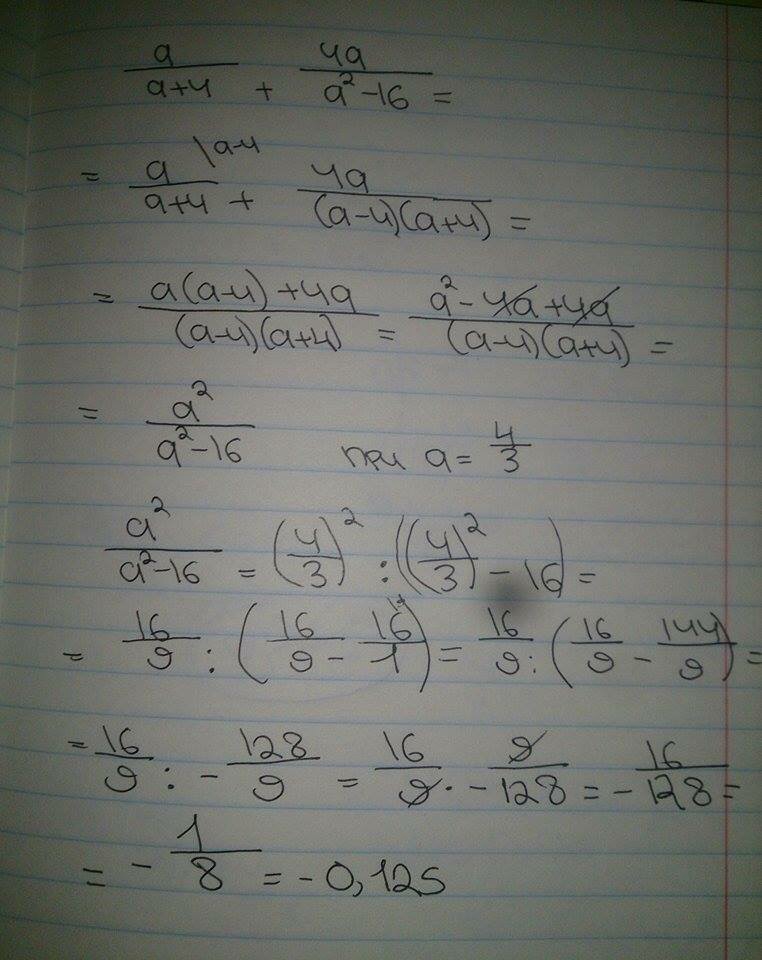 a/(a+4) + 4a/(a²-16) =
= a\a-4/(a+4) + 4a/((a-4)(a+4)) =
= (a(a-4)+4a)/((a-4)(a+4)) = (a²-4a+4a)/((a-4)(a+4)) =
= a²/(a²-16) при a= 4/3
a²/(a²-16) = (4/3)² : ((4/3)² - 16) =
= 16/9 : (16/9 - 16/1) = 16/9 : (16/9 - 144/9) =
= 16/9 : - 128/9 = 16/9 · 9/-128 = - 16/128 =
= - 1/8 = -0,125